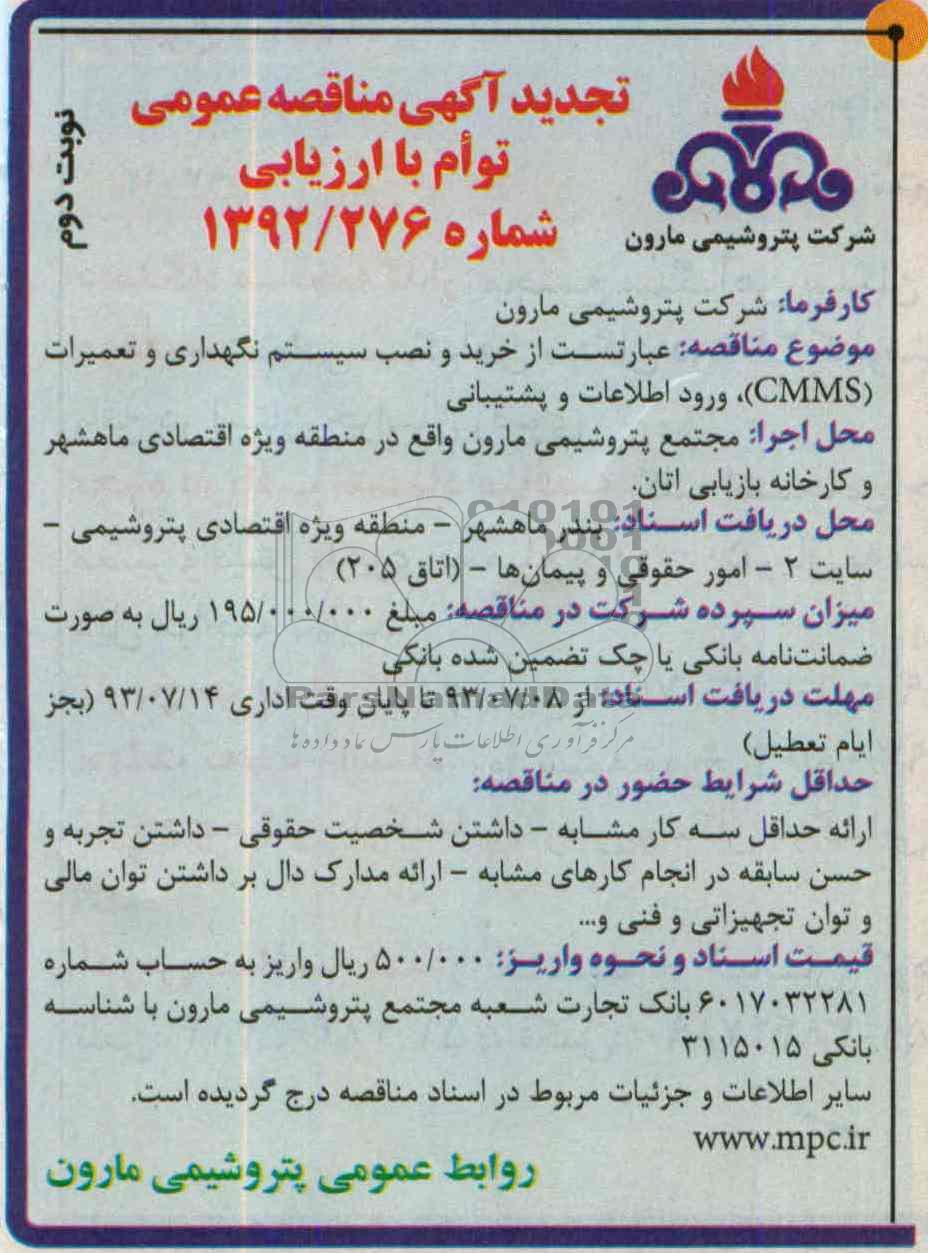 تجدید آگهی مناقصه عمومی
توأم با ارزیابی
شماره ۱۳۹۲/۲۷۶
نوبت دوم
شرکت پتروشیمی مارون
کارفرما: شرکت پتروشیمی مارون
موضوع مناقصه: عبارتست از خرید و نصب سیستم نگهداری و تعمیرات
(CMMS)، ورود اطلاعات و پشتیبانی
محل اجرا: مجتمع پتروشیمی مارون واقع در منطقه ویژه اقتصادی ماهشهر
و کارخانه بازیابی اتان.
محل دریافت اسناد: بندر ماهشهر – منطقه ویژه اقتصادی پتروشیمی –
سایت ۲ – امور حقوقی و پیمان‌ها – (اتاق ۲۰۵)
میزان سپرده شرکت در مناقصه: مبلغ ۱۹۵/۰۰۰/۰۰۰ ریال به صورت
ضمانت‌نامه بانکی یا چک تضمین شده بانکی
مهلت دریافت اسناد: از ۹۳/۰۷/۰۸ تا پایان وقت اداری ۹۳/۰۷/۱۴ (بجز
ایام تعطیل)
Pars Namad Data
مرکز فرآوری اطلاعات پارس نماد داده ها
حداقل شرایط حضور در مناقصه:
ارائه حداقل سه کار مشابه – داشتن شخصیت حقوقی – داشتن تجربه و
حسن سابقه در انجام کارهای مشابه – ارائه مدارک دال بر داشتن توان مالی
و توان تجهیزاتی و فنی و...
قیمت اسناد و نحوه واریز: ۵۰۰/۰۰۰ ریال واریز به حساب شماره
۶۰۱۷۰۳۲۲۸۱ بانک تجارت شعبه مجتمع پتروشیمی مارون با شناسه
بانکی ۳۱۱۵۰۱۵
سایر اطلاعات و جزئیات مربوط در اسناد مناقصه درج گردیده است.
www.mpc.ir
روابط عمومی پتروشیمی مارون